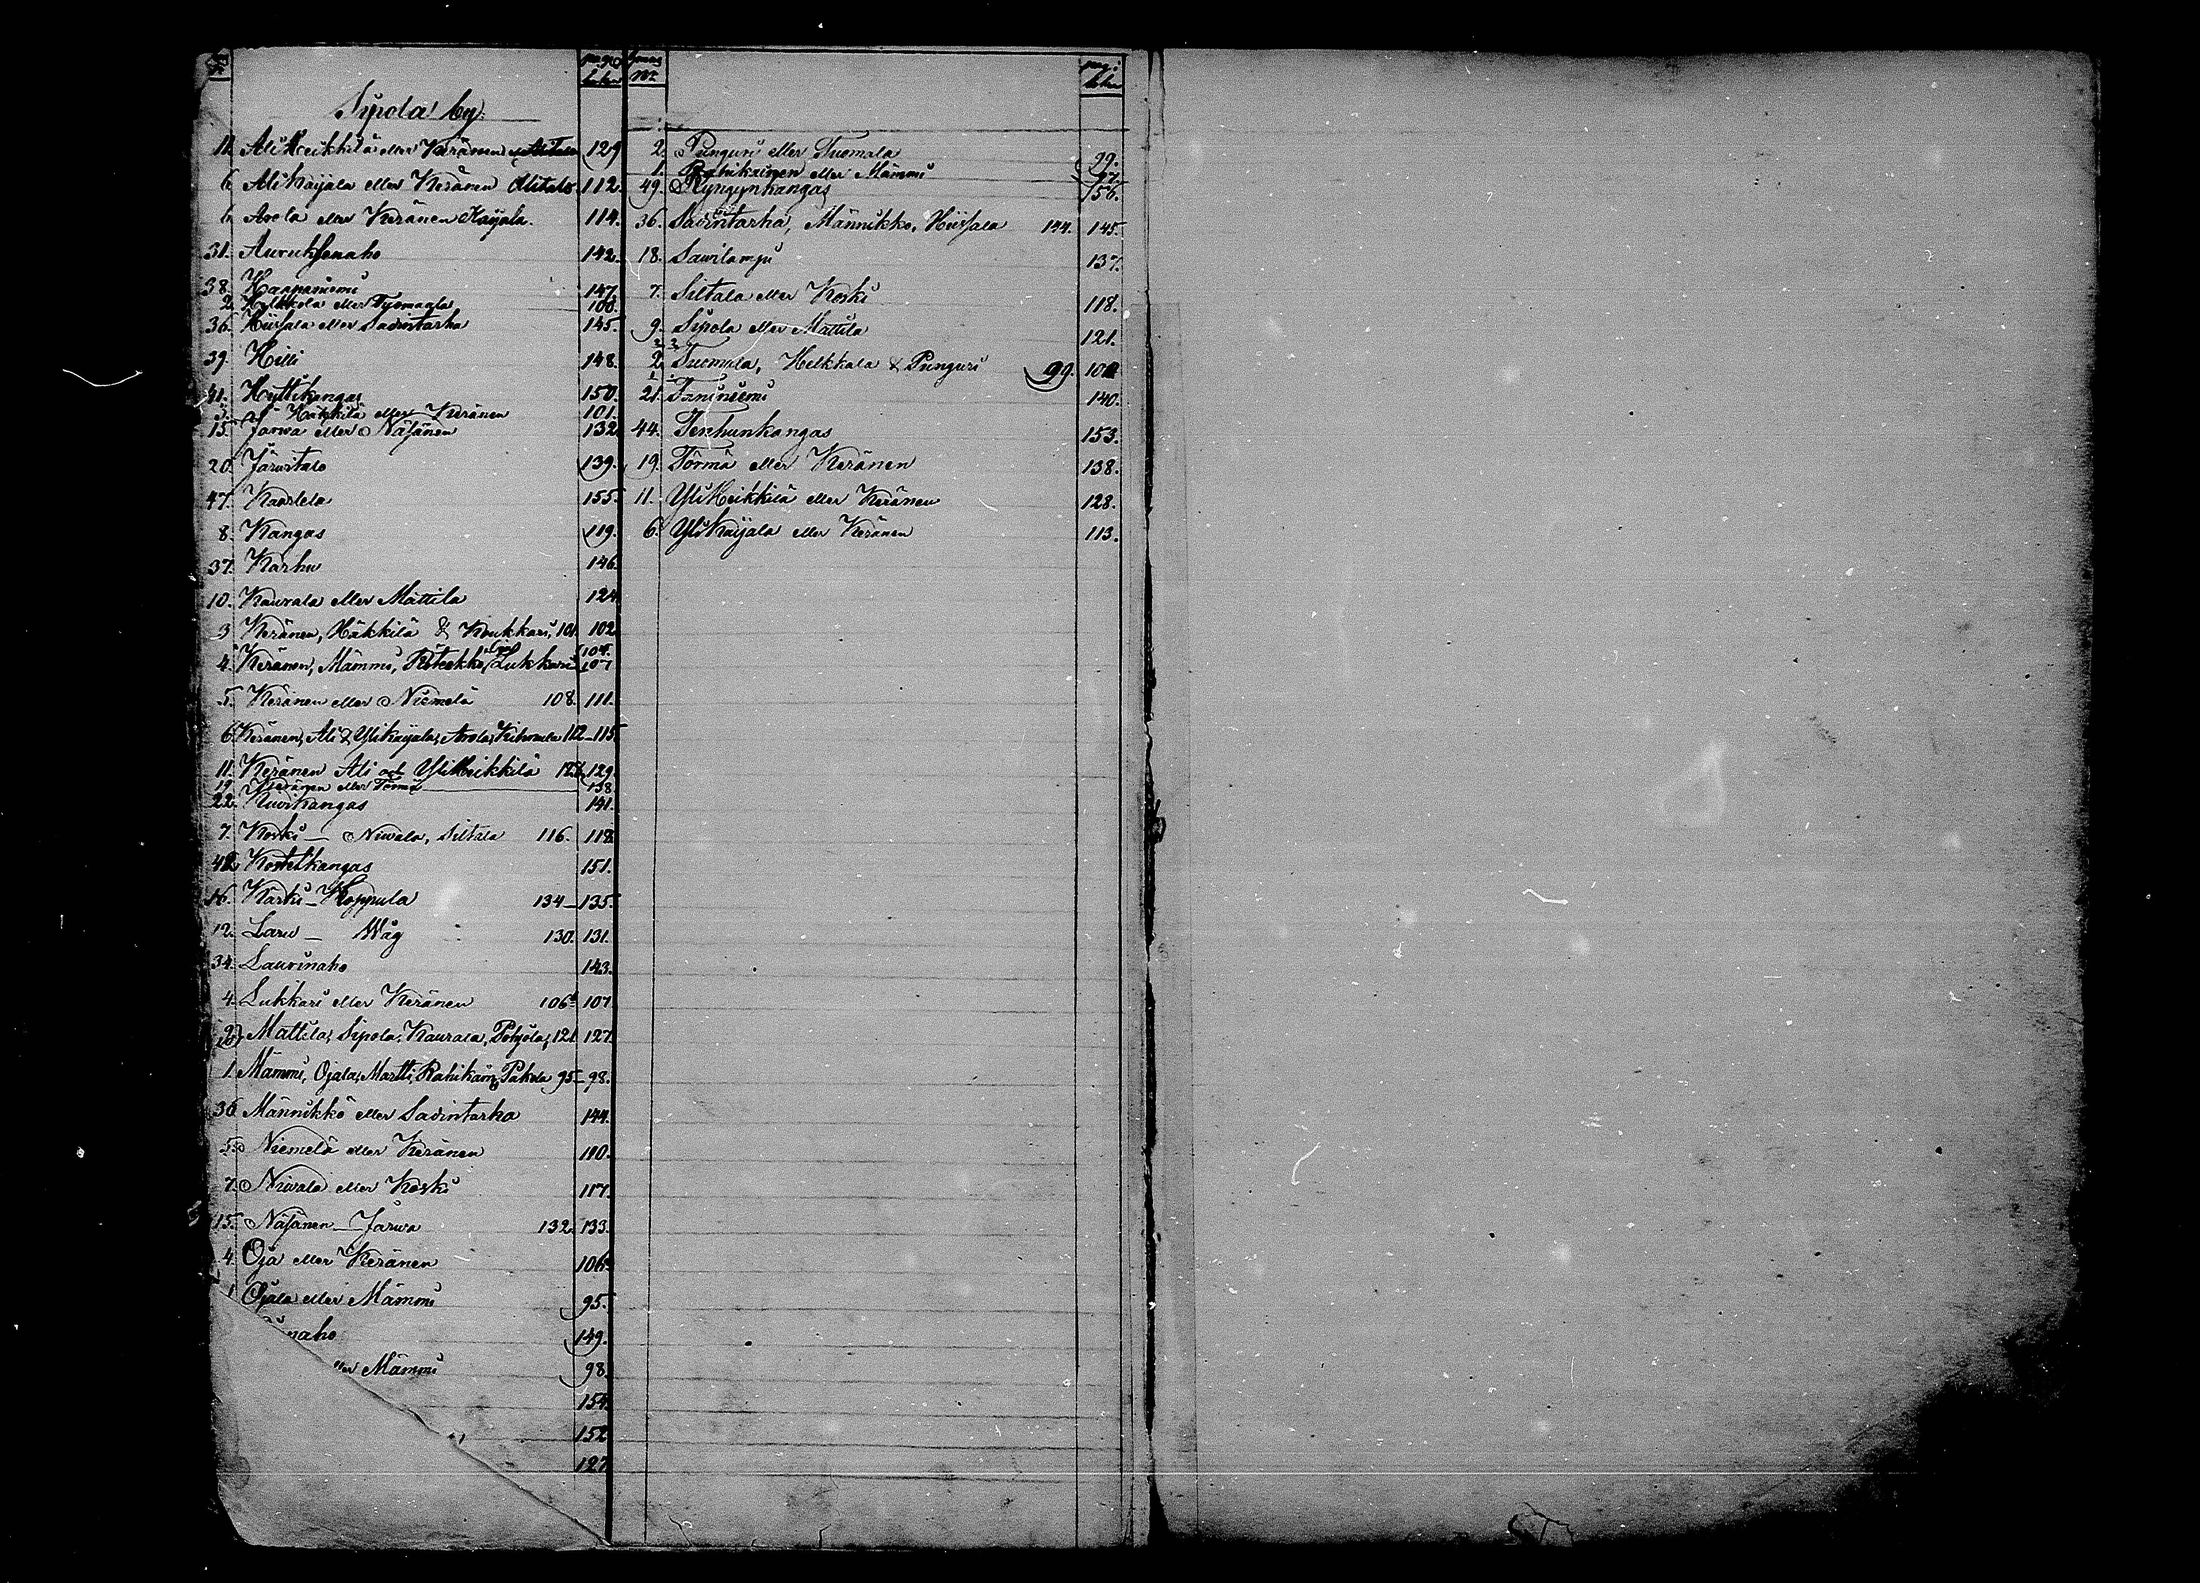 Sipola by.
11. AliHeikkilä eller Keränen 129
6. AliKaijala eller Keränen Alitalo 112.
6. Arola eller Keränen Kaijala. 114.
31. Auruksenaho 142.
38. Haapaniemi 147
2. Helkkola eller Tuomaala 100.
36. Hiisala eller Sadintarha 145.
39. Hilli 148.
41. Hyttikangas 150.
3. Häkkilä eller Keränen 101.
15. Jarwa eller Näsänen 132
20. Järwitalo 139.
47. Kaarlela 155.
8. Kangas 119.
37. Karhu 146.
10. Kaurala eller Mattila 124
3 Keränen, Häkkilä & Koukkari, 101. 102
4. Keränen, Mämmi, Oja Lukkari 104. 107
5. Keränen eller Niemelä 108. 111.
6. Keränen, Ali & YliKaijala, Arola, 112-115
11. Keränen Ali och YliHeikkilä 128. 129.
19. Keränen eller Törmä 138
22. Kiwikangas 141.
7. Koski - Niwala, Siltala 116. 118.
42. Kortetkangas 151.
16. Karki - Hoppula 134-135.
12. Laru - Wåg 130. 131.
34. Laurinaho 143.
4. Lukkari eller Keränen 106. 107
9. 10. Mattila, Sipola, Kaurala, Pohjola, 121. 127.
1 Mämmi, Ojala, Martti, Rahikain, Pakola 95-98.
36 Männikkö eller Sadintarha 144.
5. Niemelä eller Keränen 110.
7. Niwala eller Koski 117.
15. Näsänen - Jarwa 132. 133.
4. Oja eller Keränen 106.
1 Ojala eller Mämmi 95.
naho 149.
ller Mämmi 98.
154.
152
127.
2. Punguri eller Tuomala 99.
1. Rahikainen eller Mämmi 97.
49. Ryngynkangas 156.
36. Sadintarha, Männikkö, Hiisala 144. 145.
18. Sawilampi 137.
7. Siltala eller Koski 118.
9. Sipola eller Mattila 121.
2. Tuomala, Helkkala & Punguri 99. 100
21. Taniniemi 140.
44. Terhunkangas 153.
19. Törmä eller Keränen 138.
11. YliHeikkilä eller Keränen 128.
6. YliKaijala eller Keränen 113.